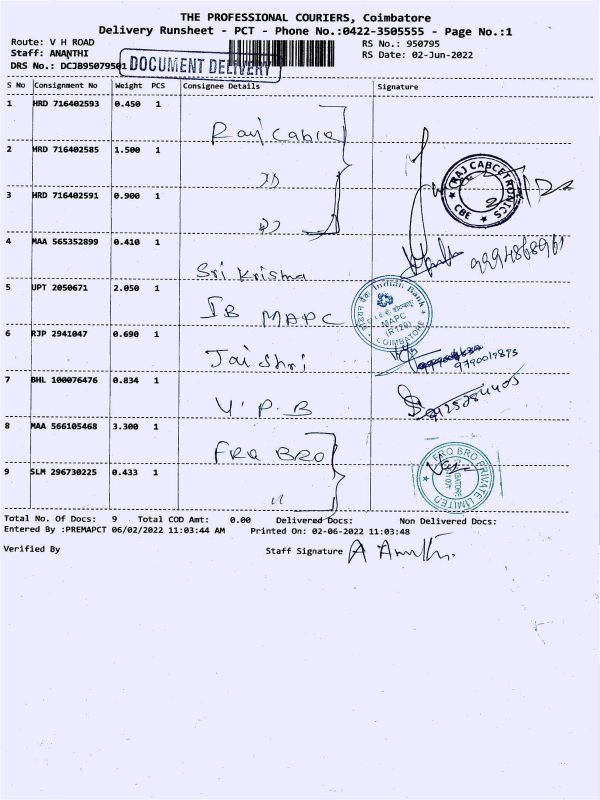 THE PROFESSIONAL COURIERS, Coimbatore
Delivery Runsheet - PCT - Phone No.:0422-3505555 - Page No.:1
Route: V H ROAD RS No.: 950795
Staff: ANANTHI RS Date: 02-Jun-2022
DRS No.: DCJB95079501 DOCUMENT DELIVERY
S No Consignment No Weight PCS Consignee Details Signature
1 HRD 716402593 0.450 1 Raj Cable
2 HRD 716402585 1.500 1
RAJ CABCETRONICS
CBE
3 HRD 716402591 0.900 1
4 MAA 565352899 0.410 1 Sri Krisma
5 UPT 2050671 2.050 1 IB MAPC
Indian Bank
MAPC
COIMBATORE
6 RJP 2941047 0.690 1 Jai Shri
7 BHL 100076476 0.834 1 Y.P.B
8 MAA 566105468 3.300 1 FRQ BRO
9 SLM 296730225 0.433 1 "
FRQ BRO PRIVATE LIMITED
Total No. Of Docs: 9 Total COD Amt: 0.00 Delivered Docs: Non Delivered Docs:
Entered By :PREMAPCT 06/02/2022 11:03:44 AM Printed On: 02-06-2022 11:03:48
Verified By Staff Signature